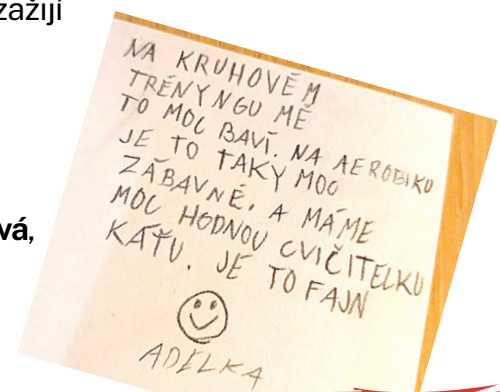 zažijí
NA KRUHOVÉM
TRÉNYNGU MĚ
TO MOC BAVÍ. NA AEROBIKU
JE TO TAKY MOC
ZÁBAVNÉ. A MÁME
MOC HODNOU CVIČITELKU
KÁŤU. JE TO FAJN
vá,
ADÉLKA